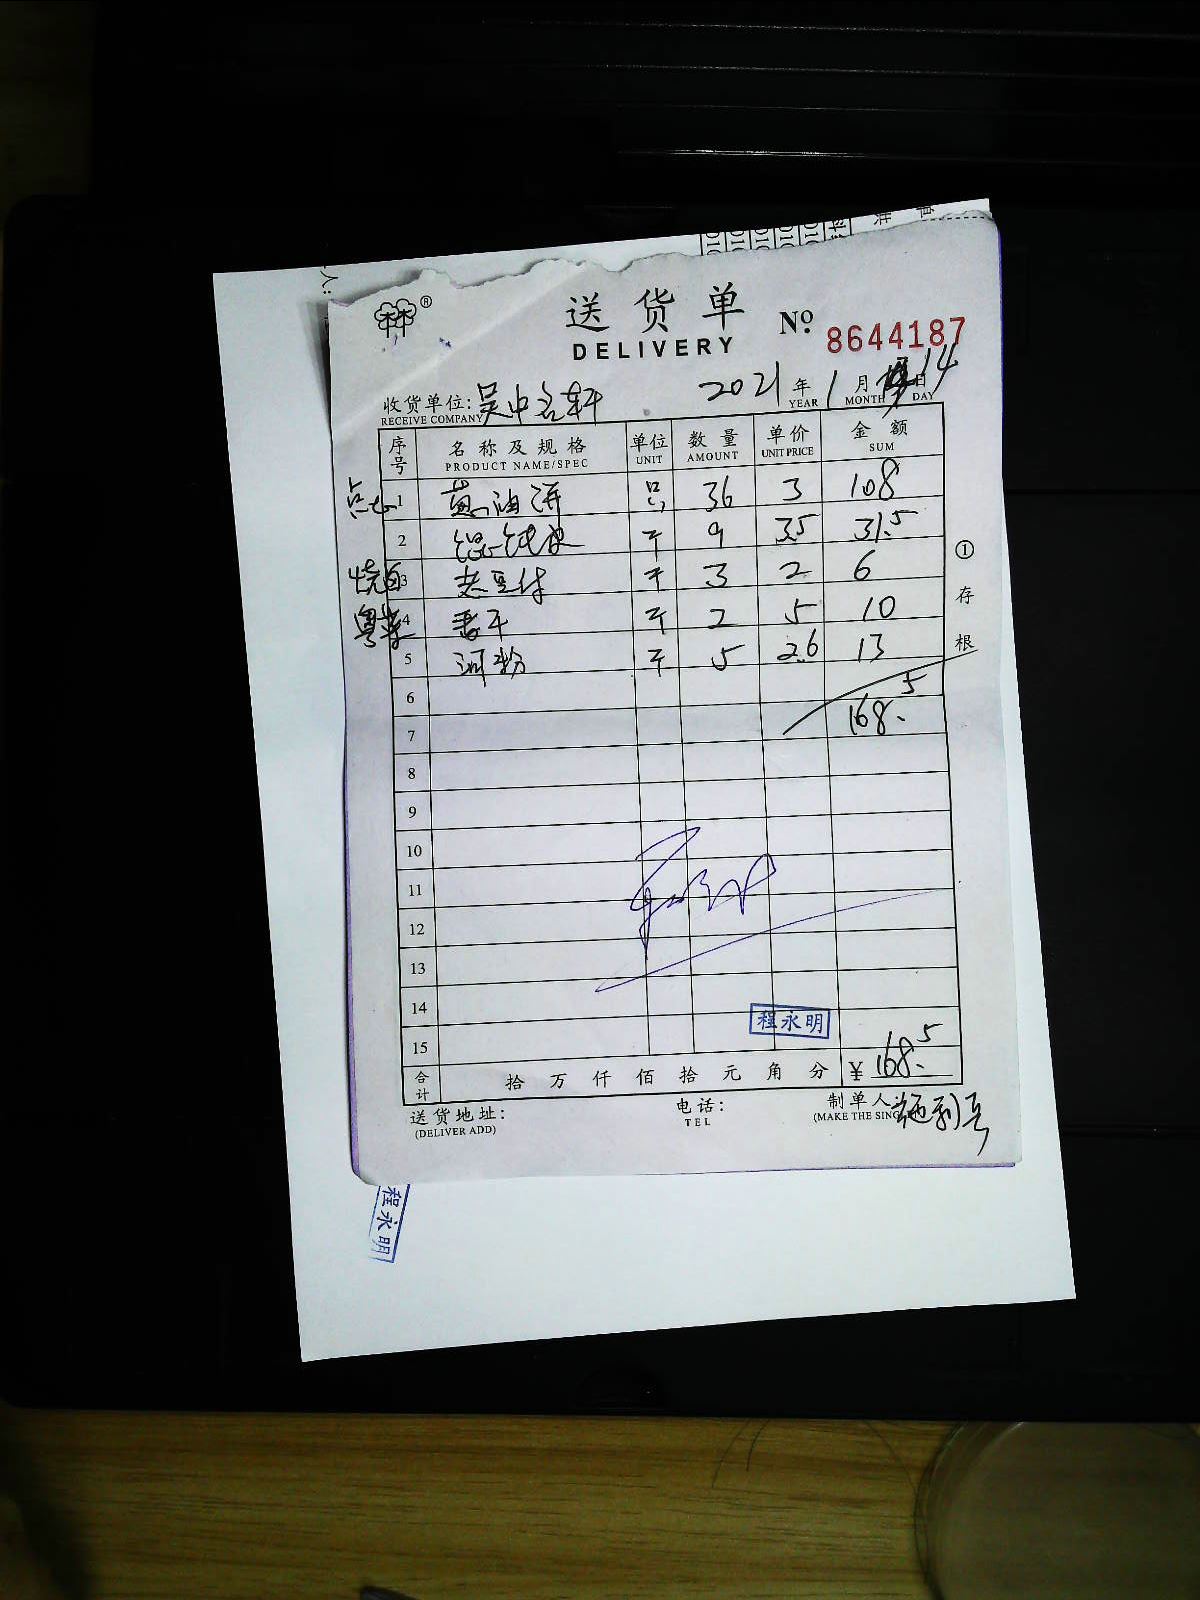 ®
送货单
DELIVERY
№ 8644187
收货单位:吴中名轩 2021年1月14日
RECEIVE COMPANY YEAR MONTH DAY
序号 名称及规格 单位 数量 单价 金额
PRODUCT NAME/SPEC UNIT AMOUNT UNIT PRICE SUM
点心 1 葱油饼 只 36 3 108
2 馄饨皮 斤 9 3.5 31.5
烧卤 3 老豆付 斤 3 2 6
粤菜 4 香干 斤 2 5 10
5 河粉 斤 5 2.6 13
6
7 168.5
8
9
10
11
12
13
14
15
程永明
合计 拾 万 仟 佰 拾 元 角 分 ¥168.5
送货地址: 电话: 制单人
(DELIVER ADD) TEL (MAKE THE SING
①存根
程永明